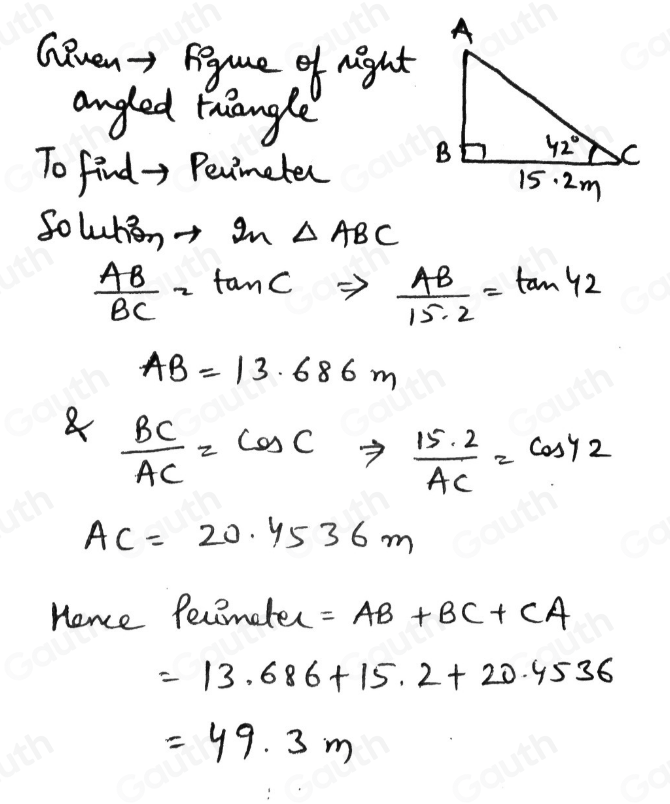 Given → Figure of right
angled triangle
To find → Perimeter
A
B
42°
C
15.2m
Solution → In △ ABC
AB/BC = tan C ⇒ AB/15.2 = tan 42
AB = 13.686 m
& BC/AC = Cos C ⇒ 15.2/AC = Cos 42
AC = 20.4536 m
Hence Perimeter = AB + BC + CA
= 13.686 + 15.2 + 20.4536
= 49.3 m
Gauth